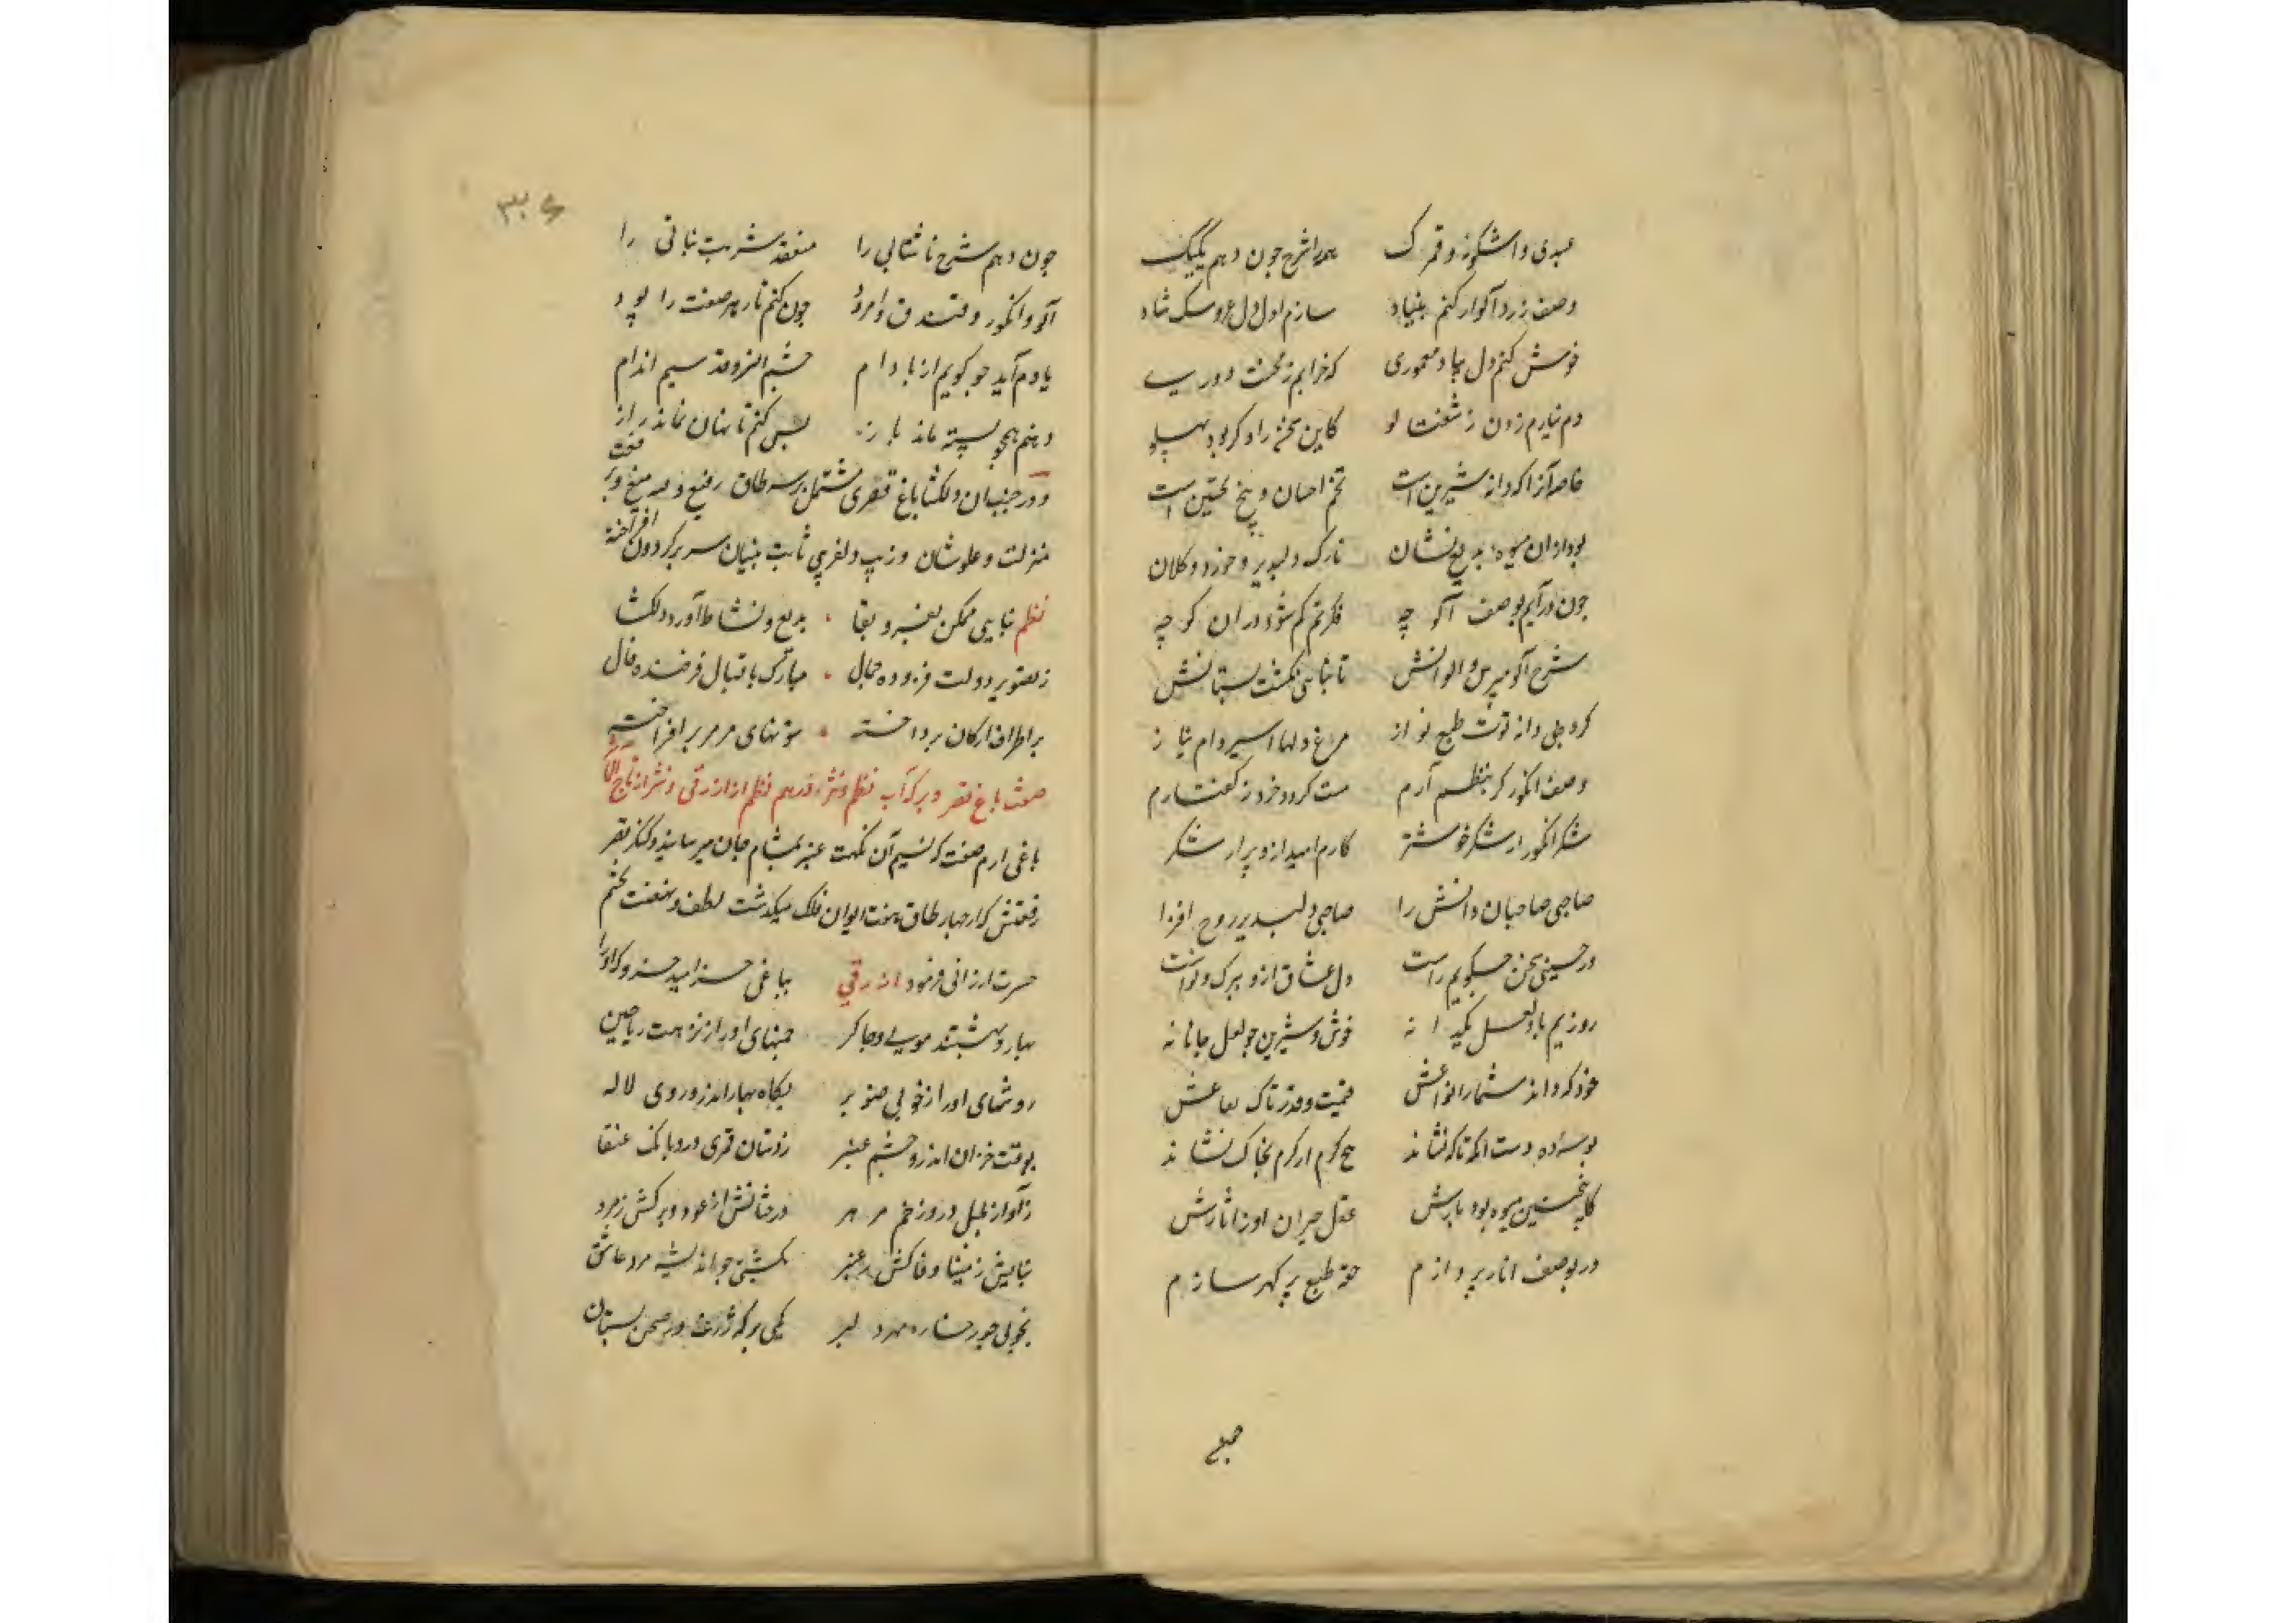 عبدی و اشکور و قمرک همه را شرح چون دهم یکیک
وصف زردآلو ار کنم بنیاد سازم اول دل عروسک شاد
خوش کنم دل بیاد معموری که خرابم ز محنت دوری
دم نیارم زدن ز شفتالو کاین سخن را دگر بود پهلو
خاصه آنرا که دانه شیرین است تخم احسان و بیخ تحسین است
بود از آن میوه بدیع نشان نازک و دلپذیر و خورد و کلان
چون درآیم بوصف آلوچه فکرتم کم شود در آن کوچه
شرح آلو مپرس و الوانش تا نیائی بگشت بستانش
کرد بی دانه توت طبع نواز مرغ دلها اسیر دام نیاز
وصف انگور کر بنظم آرم مست کردد خرد ز کفتارم
شکر انگور از شکر خوشتر کارم امید ازو پر از شکر
صاحبی صاحبان دانش را صاحبی دلپذیر روح افزا
در حسینی سخن چه گویم راست دل عشاق ازو ببرک و نواست
روزیم باد لعل یکدانه خوش و شیرین چو لعل جانانه
خود که داند شمار انواعش قیمت و قدر تاک بقاعش
بوسه ده دست آنکه تاک نشاند هیچ کرم ار کرم بخاک نشاند
کابخستین میوه بود بارش عقل حیران او ز آثارش
در بوصف انار پردازم حقه طبع پر کهر سازم
صبعی
۳۰۶
چون دهم شرح ناشتابی را منعقد شربت نباتی را
آلو و انگور و فندق و امرود چون کنم تار هر صفت را پود
یادم آید چو کویم از بادام چشم آنرو قد سیم اندام
دهنم همچو پسته ماند باز بس کنم تا نهان نماند راز
و در جنب آن دلکشا باغ قصری مشتمل بر سه طاق رفیع و منیع و رفعت
منزلت و علو شان و زیب و دلفریبی ثابت بنیان سر بر کردون افراخته
نظم بنایی ممکن بعز و بقا بدیع و نشاط آور و دلکشا
ز تصویر دولت فزوده جمال مبارک باقبال فرخنده فال
بر اطراف ارکان برداخته ستونهای مرمر برافراخته
صفت باغ قصر و برکه آب نظم و نثر در هم نظم از ازرقی و نثر از تاج المآثر
باغی ارم صفت که نسیم آن نکهت عنبر بمشام جان میرسانید و کنگره قصر
رفعتش که از چهار طاق هفت ایوان فلک میکذشت لطف و صنعت بچشم
حسرت ارزانی فرمود ازرقی بباغی خرامید خسرو که او را
بهار و بهشتند مولی و چاکر چمنهای او را ز نزهت ریاحین
روشهای او را از خوبی صنوبر بکاه بهار اندرو روی لاله
بوقت خزان اندرو چشم عبهر ز دستان قمری درو بانک عنقا
ز آواز بلبل درو زخم مزهر درختانش از عود و برکش زمرد
نباتش ز مینا و خاکش ز عنبر بکشی چو اندیشه مرد عاشق
بخوبی چو رخساره مهر دلبر یکی برکه ژرف در صحن بستان